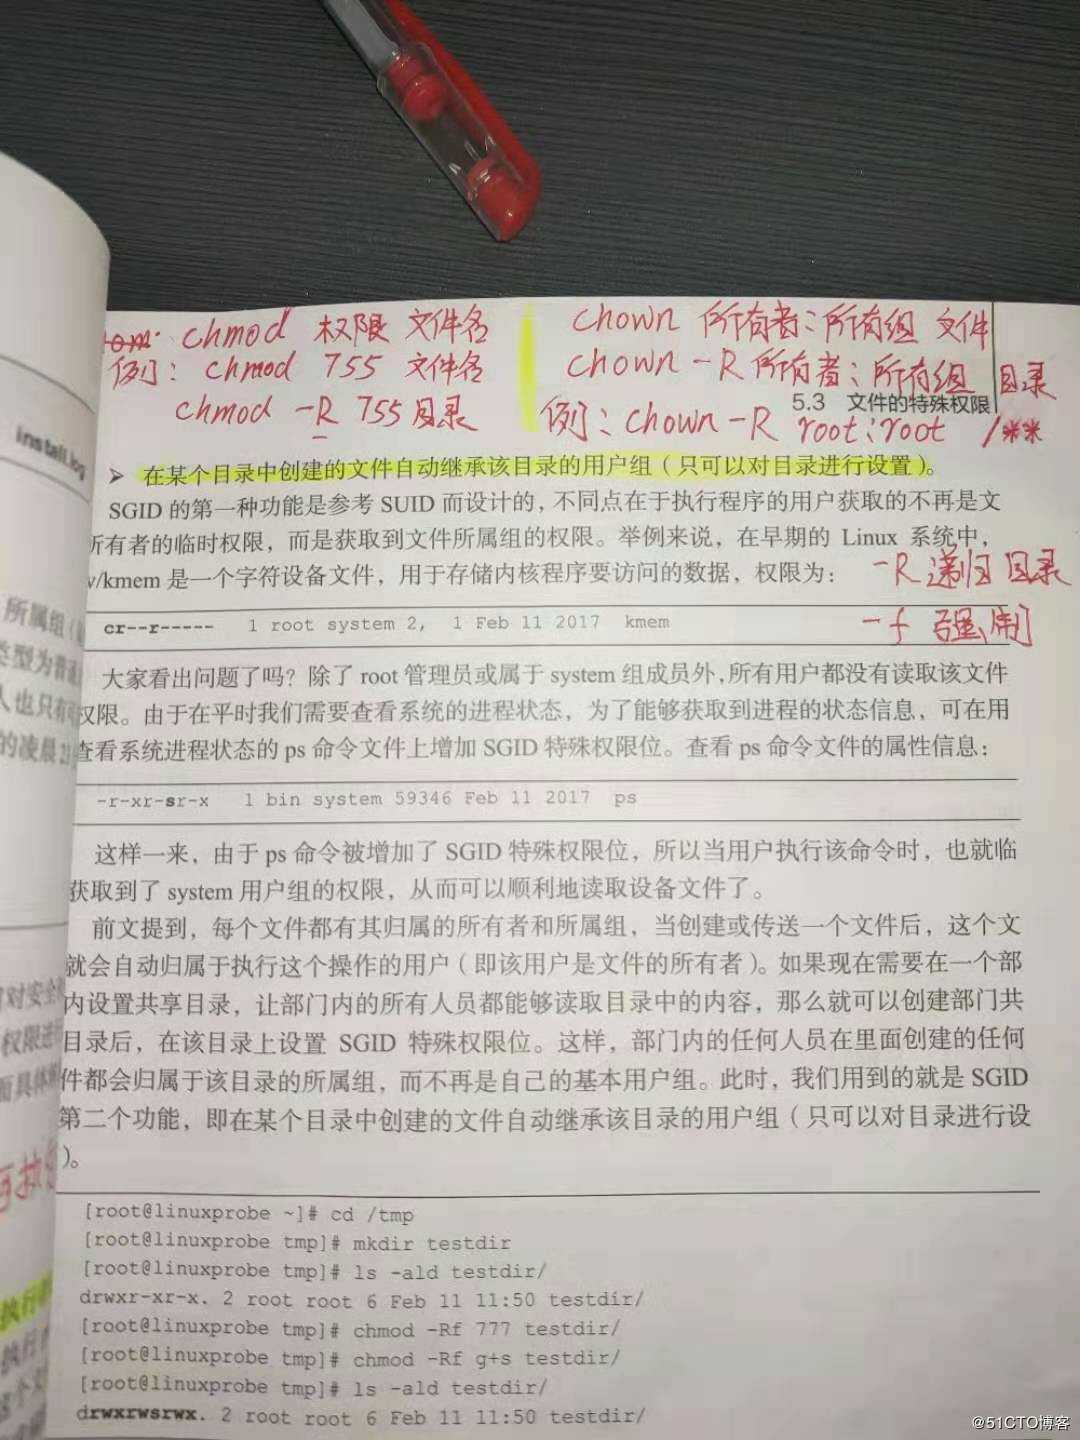 chmod 权限 文件名
例：chmod 755 文件名
chmod -R 755 目录
chown 所有者：所有组 文件
chown -R 所有者：所有组 目录
例：chown -R root：root /**
5.3 文件的特殊权限
➢ 在某个目录中创建的文件自动继承该目录的用户组（只可以对目录进行设置）。
SGID 的第一种功能是参考 SUID 而设计的，不同点在于执行程序的用户获取的不再是文
所有者的临时权限，而是获取到文件所属组的权限。举例来说，在早期的 Linux 系统中，
v/kmem 是一个字符设备文件，用于存储内核程序要访问的数据，权限为：
-R 递归目录
-f 强制
cr--r----- 1 root system 2, 1 Feb 11 2017 kmem
大家看出问题了吗？除了 root 管理员或属于 system 组成员外，所有用户都没有读取该文件
权限。由于在平时我们需要查看系统的进程状态，为了能够获取到进程的状态信息，可在用
查看系统进程状态的 ps 命令文件上增加 SGID 特殊权限位。查看 ps 命令文件的属性信息：
-r-xr-sr-x 1 bin system 59346 Feb 11 2017 ps
这样一来，由于 ps 命令被增加了 SGID 特殊权限位，所以当用户执行该命令时，也就临
获取到了 system 用户组的权限，从而可以顺利地读取设备文件了。
前文提到，每个文件都有其归属的所有者和所属组，当创建或传送一个文件后，这个文
就会自动归属于执行这个操作的用户（即该用户是文件的所有者）。如果现在需要在一个部
内设置共享目录，让部门内的所有人员都能够读取目录中的内容，那么就可以创建部门共
目录后，在该目录上设置 SGID 特殊权限位。这样，部门内的任何人员在里面创建的任何
件都会归属于该目录的所属组，而不再是自己的基本用户组。此时，我们用到的就是 SGID
第二个功能，即在某个目录中创建的文件自动继承该目录的用户组（只可以对目录进行设
）。
[root@linuxprobe ~]# cd /tmp
[root@linuxprobe tmp]# mkdir testdir
[root@linuxprobe tmp]# ls -ald testdir/
drwxr-xr-x. 2 root root 6 Feb 11 11:50 testdir/
[root@linuxprobe tmp]# chmod -Rf 777 testdir/
[root@linuxprobe tmp]# chmod -Rf g+s testdir/
[root@linuxprobe tmp]# ls -ald testdir/
drwxrwsrwx. 2 root root 6 Feb 11 11:50 testdir/
install.log
所属组（
类型为普通
人也只有
的凌晨 2
对安全
权限进
而具体
执行
@51CTO博客